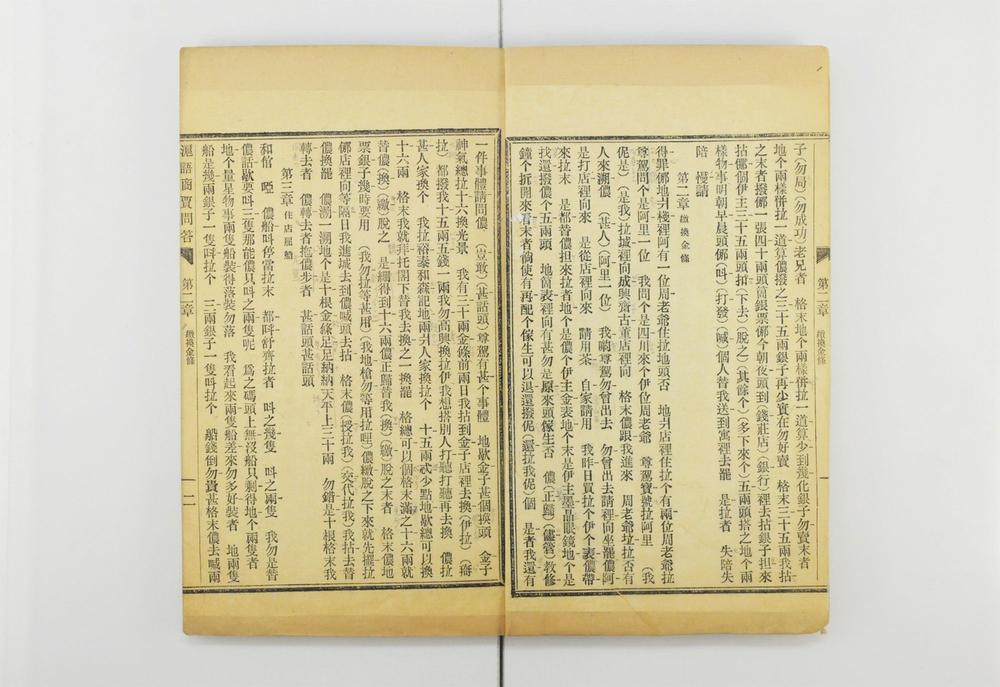 子（勿局）（勿成功）老兄者　格末地个兩樣併拉一道算少到幾化銀子勿賣末者
地个兩樣併拉一道算儂撥之三十五兩銀子再少實在勿好賣　格末三十五兩我拈
之末者撥㑚一張四十兩頭箇銀票㑚今朝夜頭到（錢莊店）（銀行）裡去拈銀子担來
拈㑚個伊主三十五兩頭扣（下去）（脫之）（其餘个）（多下來个）五兩頭搭之地个兩
樣物事明朝早晨頭㑚（呌）（打發）（喊）個人替我送到寓裡去罷　是拉者　失陪失
陪　慢請
第二章　繳換金條
得罪㑚地爿棧裡阿有一位周老爺住拉地頭否　地爿店裡住拉个有兩位周老爺拉
尊駕問个是阿里一位　我問个是四川來个伊位周老爺　尊駕寶號拉阿里　（我
伲是）（是我）拉城裡向成興齋古董店裡向　格末儂跟我進來　周老爺垃拉否有
人來溯儂　（甚人）（阿里一位）　我喲尊駕勿曾出去　勿曾出去請裡向坐罷儂阿
是打店裡向來　是從店裡向來　請用茶　自家請用　我昨日買拉个伊个表儂帶
來拉末　是都替儂担來拉者地个是儂个伊主金表地个末是伊主墨晶眼鏡地个是
找還撥儂个五兩頭　地箇表裡向有甚勿是原來頭傢生否　儂（正歸）（儘管）教修
鐘个拆開來看末者倘使有再配个傢生可以退還撥伲（還拉我伲）個　是者我還有
第二章　繳換金條
一件事體請問儂　（豈敢）（甚話頭）尊駕有甚个事體　地歇金子甚個換頭　金子
神氣總拉十六換光景　我有三十兩金條前兩日我拈到金子店裡去換（伊拉）（
拉）都撥我十五兩五錢一兩我勿高興換拉伊我想搭別人打聽打聽再去換　儂拉
甚人家換个　我拉裕泰和森記地兩爿人家換拉个　十五兩忒少點地歇總可以換
十六兩　格末我就拜托閣下替我去換之一換罷　格總可以個格末滿之十六兩就
替儂（換）（繳）脫之　是繃得到十六兩儂正歸替我（換）（繳）脫之末者　格末儂地
票銀子幾時要用　（我勿拉等甚用）（我地槍勿等用拉哩）儂繳脫之下來就先擺拉
㑚店裡向等隔日我進城去到儂喊頭去拈　格末儂（授拉我）（交代拉我）我拈去替
儂換罷　儂溯一溯地个是十根金條足足納納天平上三十兩　勿錯是十根格末我
轉去者　儂轉去者拖儂步者　甚話頭甚話頭
第三章　住店雇船
和倌　啞　儂船呌停當拉末　都呌舒齊拉者　呌之幾隻　呌之兩隻　我勿是替
儂話歇要呌三隻那能儂只呌之兩隻呢　爲之碼頭上無沒船只剩得地个兩隻者
地个量星物事兩隻船裝得落裝勿落　我看起來兩隻船差來勿多好裝者　地兩隻
船是幾兩銀子一隻呌拉个　三兩銀子一隻呌拉个　船錢倒勿貴甚格末儂去喊兩
滬語商賈問答　第二章　繳換金條　一　二